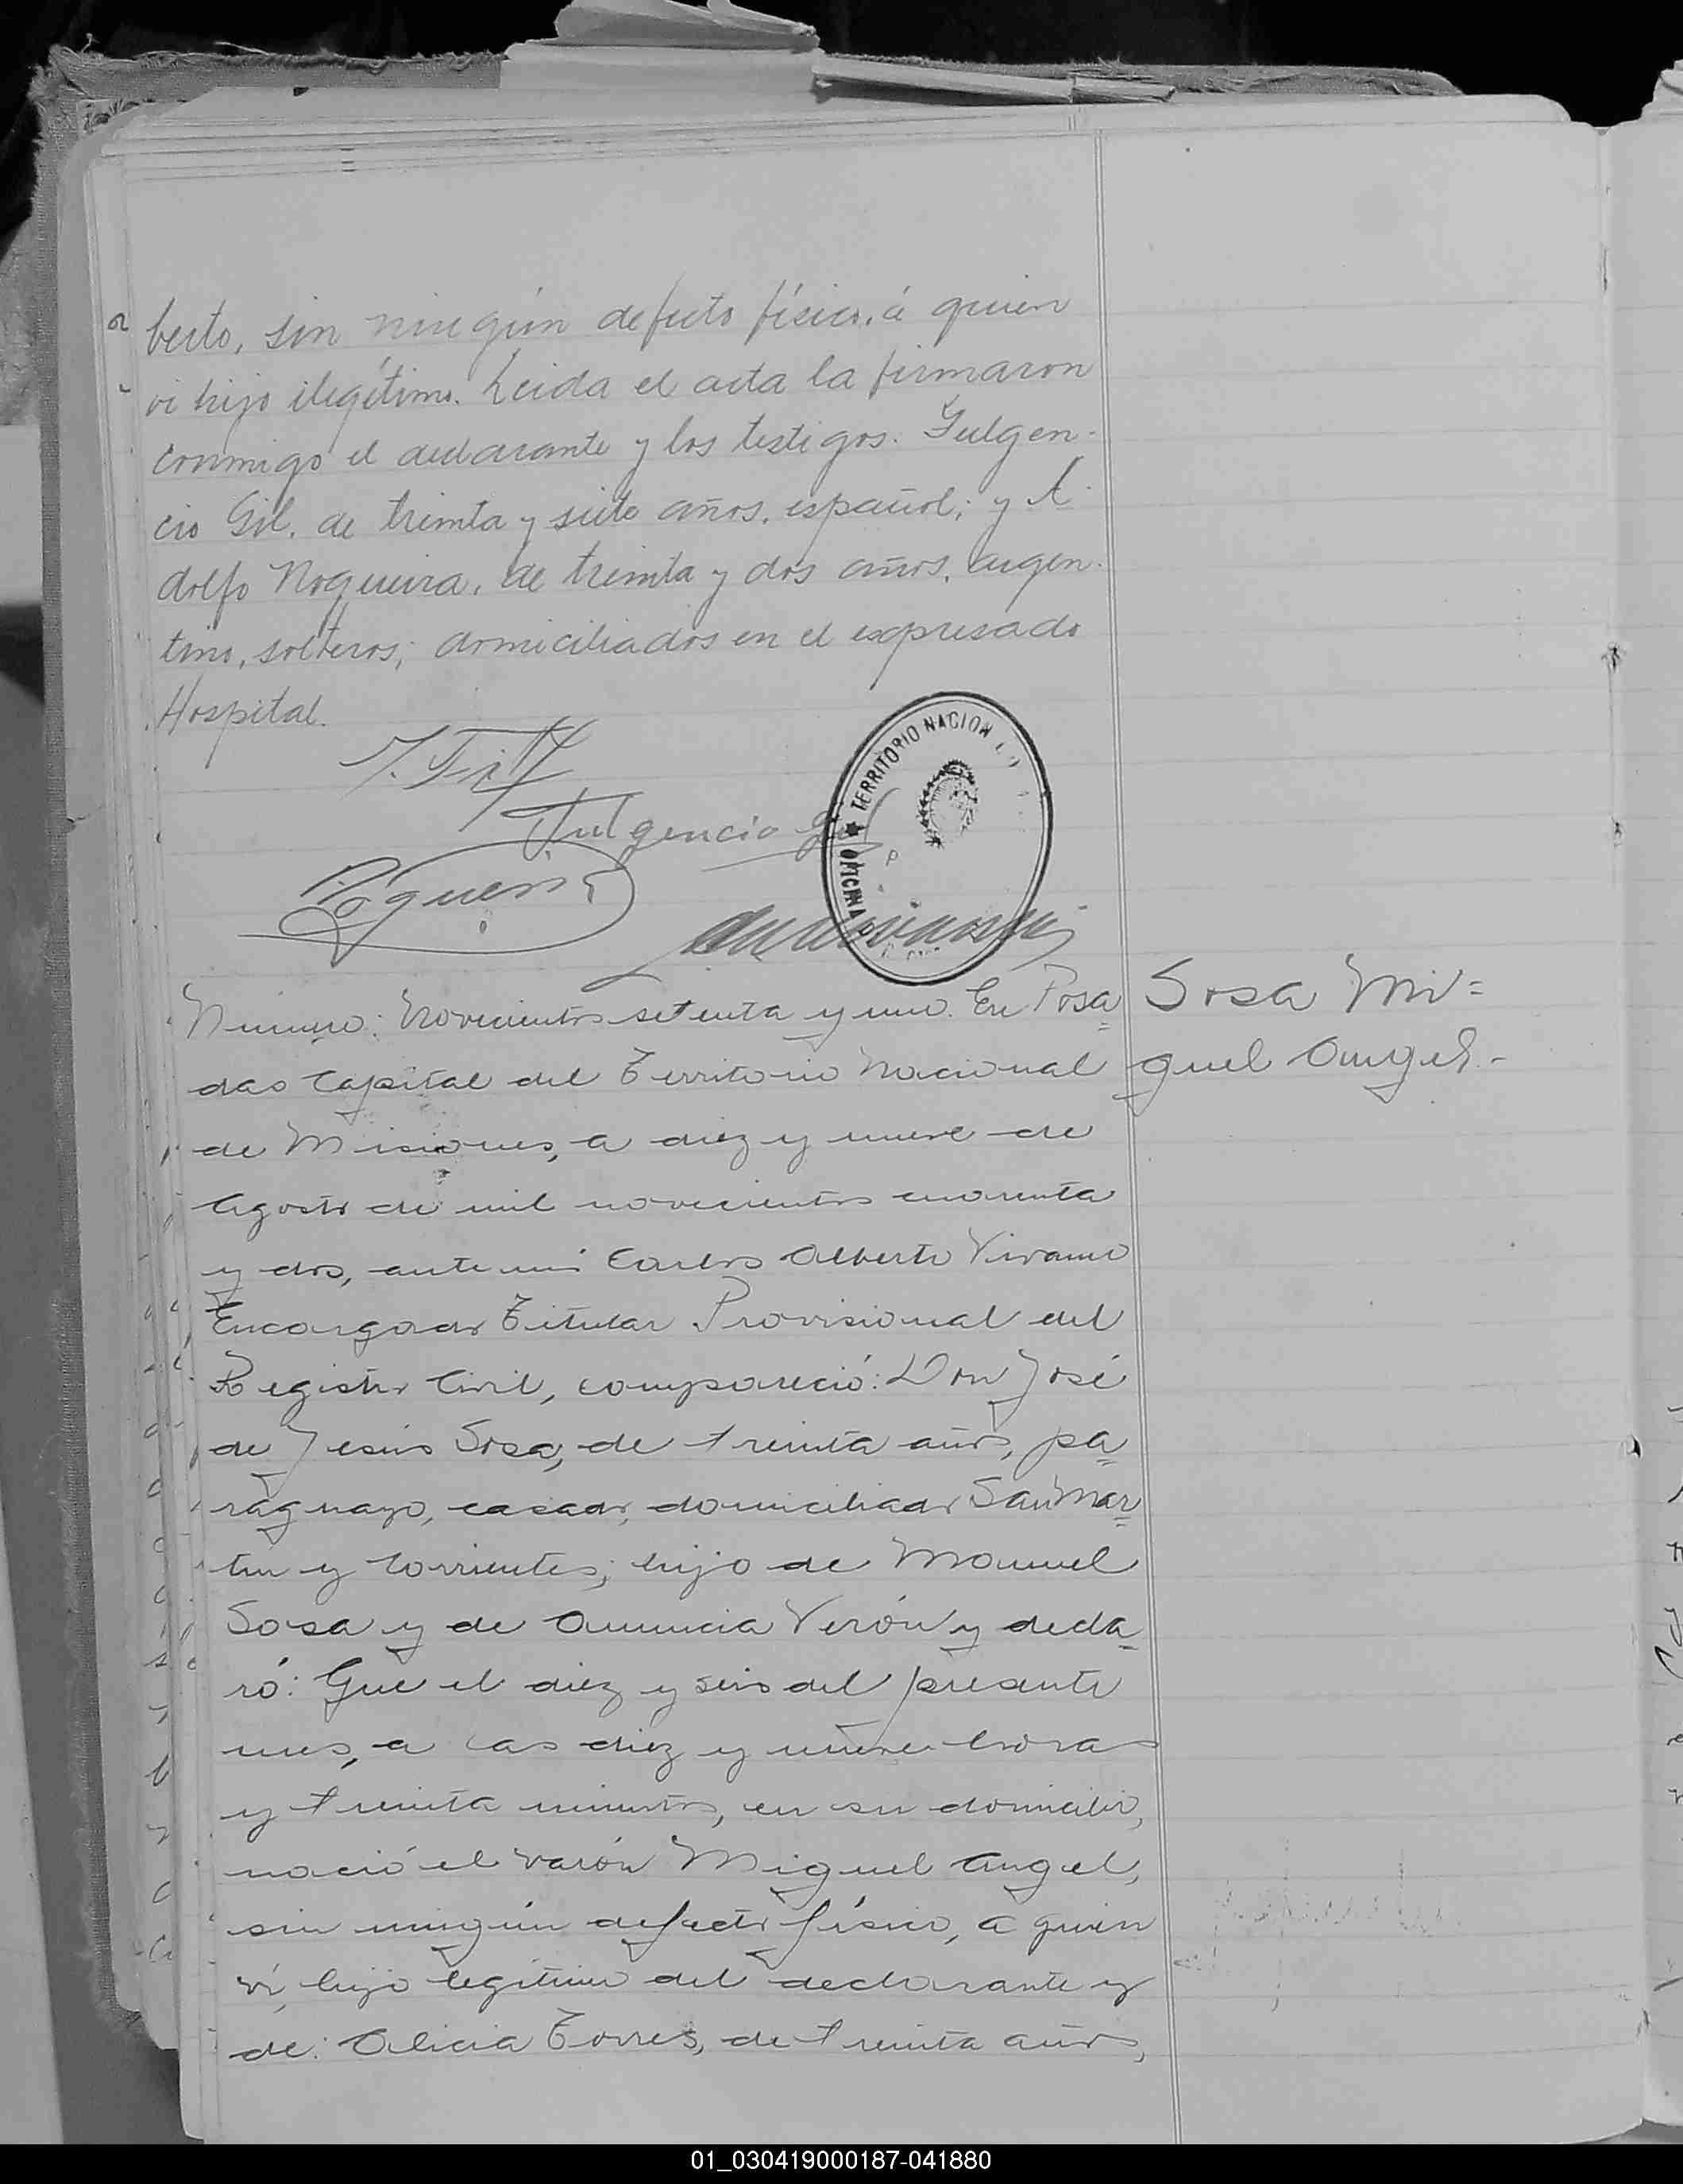 berto, sin ningún defecto físico, á quien
ví hijo ilegítimo. Leida el acta la firmaron
conmigo el declarante y los testigos: Fulgen-
cio Gil, de treinta y siete años, español; y A-
dolfo Nogueira, de treinta y dos años, argen-
tino, solteros; domiciliados en el expresado
Hospital.
TERRITORIO NACION
OFICINA
Fulgencio Gil
Número: Novecientos setenta y uno. En Posa=
das Capital del Territorio Nacional
de Misiones, a diez y nueve de
Agosto de mil novecientos cuarenta
y dos, ante mi Carlos Alberto Vivanco
Encargado Titular Provisional del
Registro Civil, compareció: Don José
de Jesús Sosa, de treinta años, pa=
raguayo, casado, domiciliado San Mar=
tin y Corrientes; hijo de Manuel
Sosa y de Anuncia Verón y decla=
ró: Que el diez y seis del presente
mes, a las diez y nueve horas
y treinta minutos, en su domicilio,
nació el varón Miguel Angel,
sin ningún defecto físico, a quien
ví, hijo legítimo del declarante y
de: Alicia Torres, de treinta años,
Sosa Mi=
guel Angel.-
01_030419000187-041880